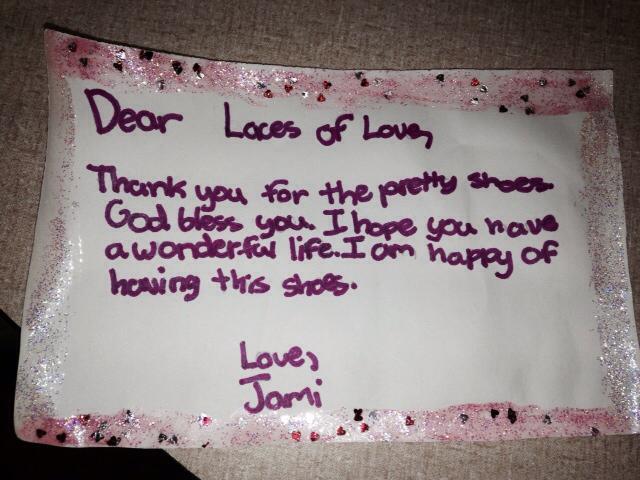 Dear Laces of Love,
Thank you for the pretty shoes.
God bless you. I hope you have
a wonderful life. I am happy of
having this shoes.
Love,
Jami